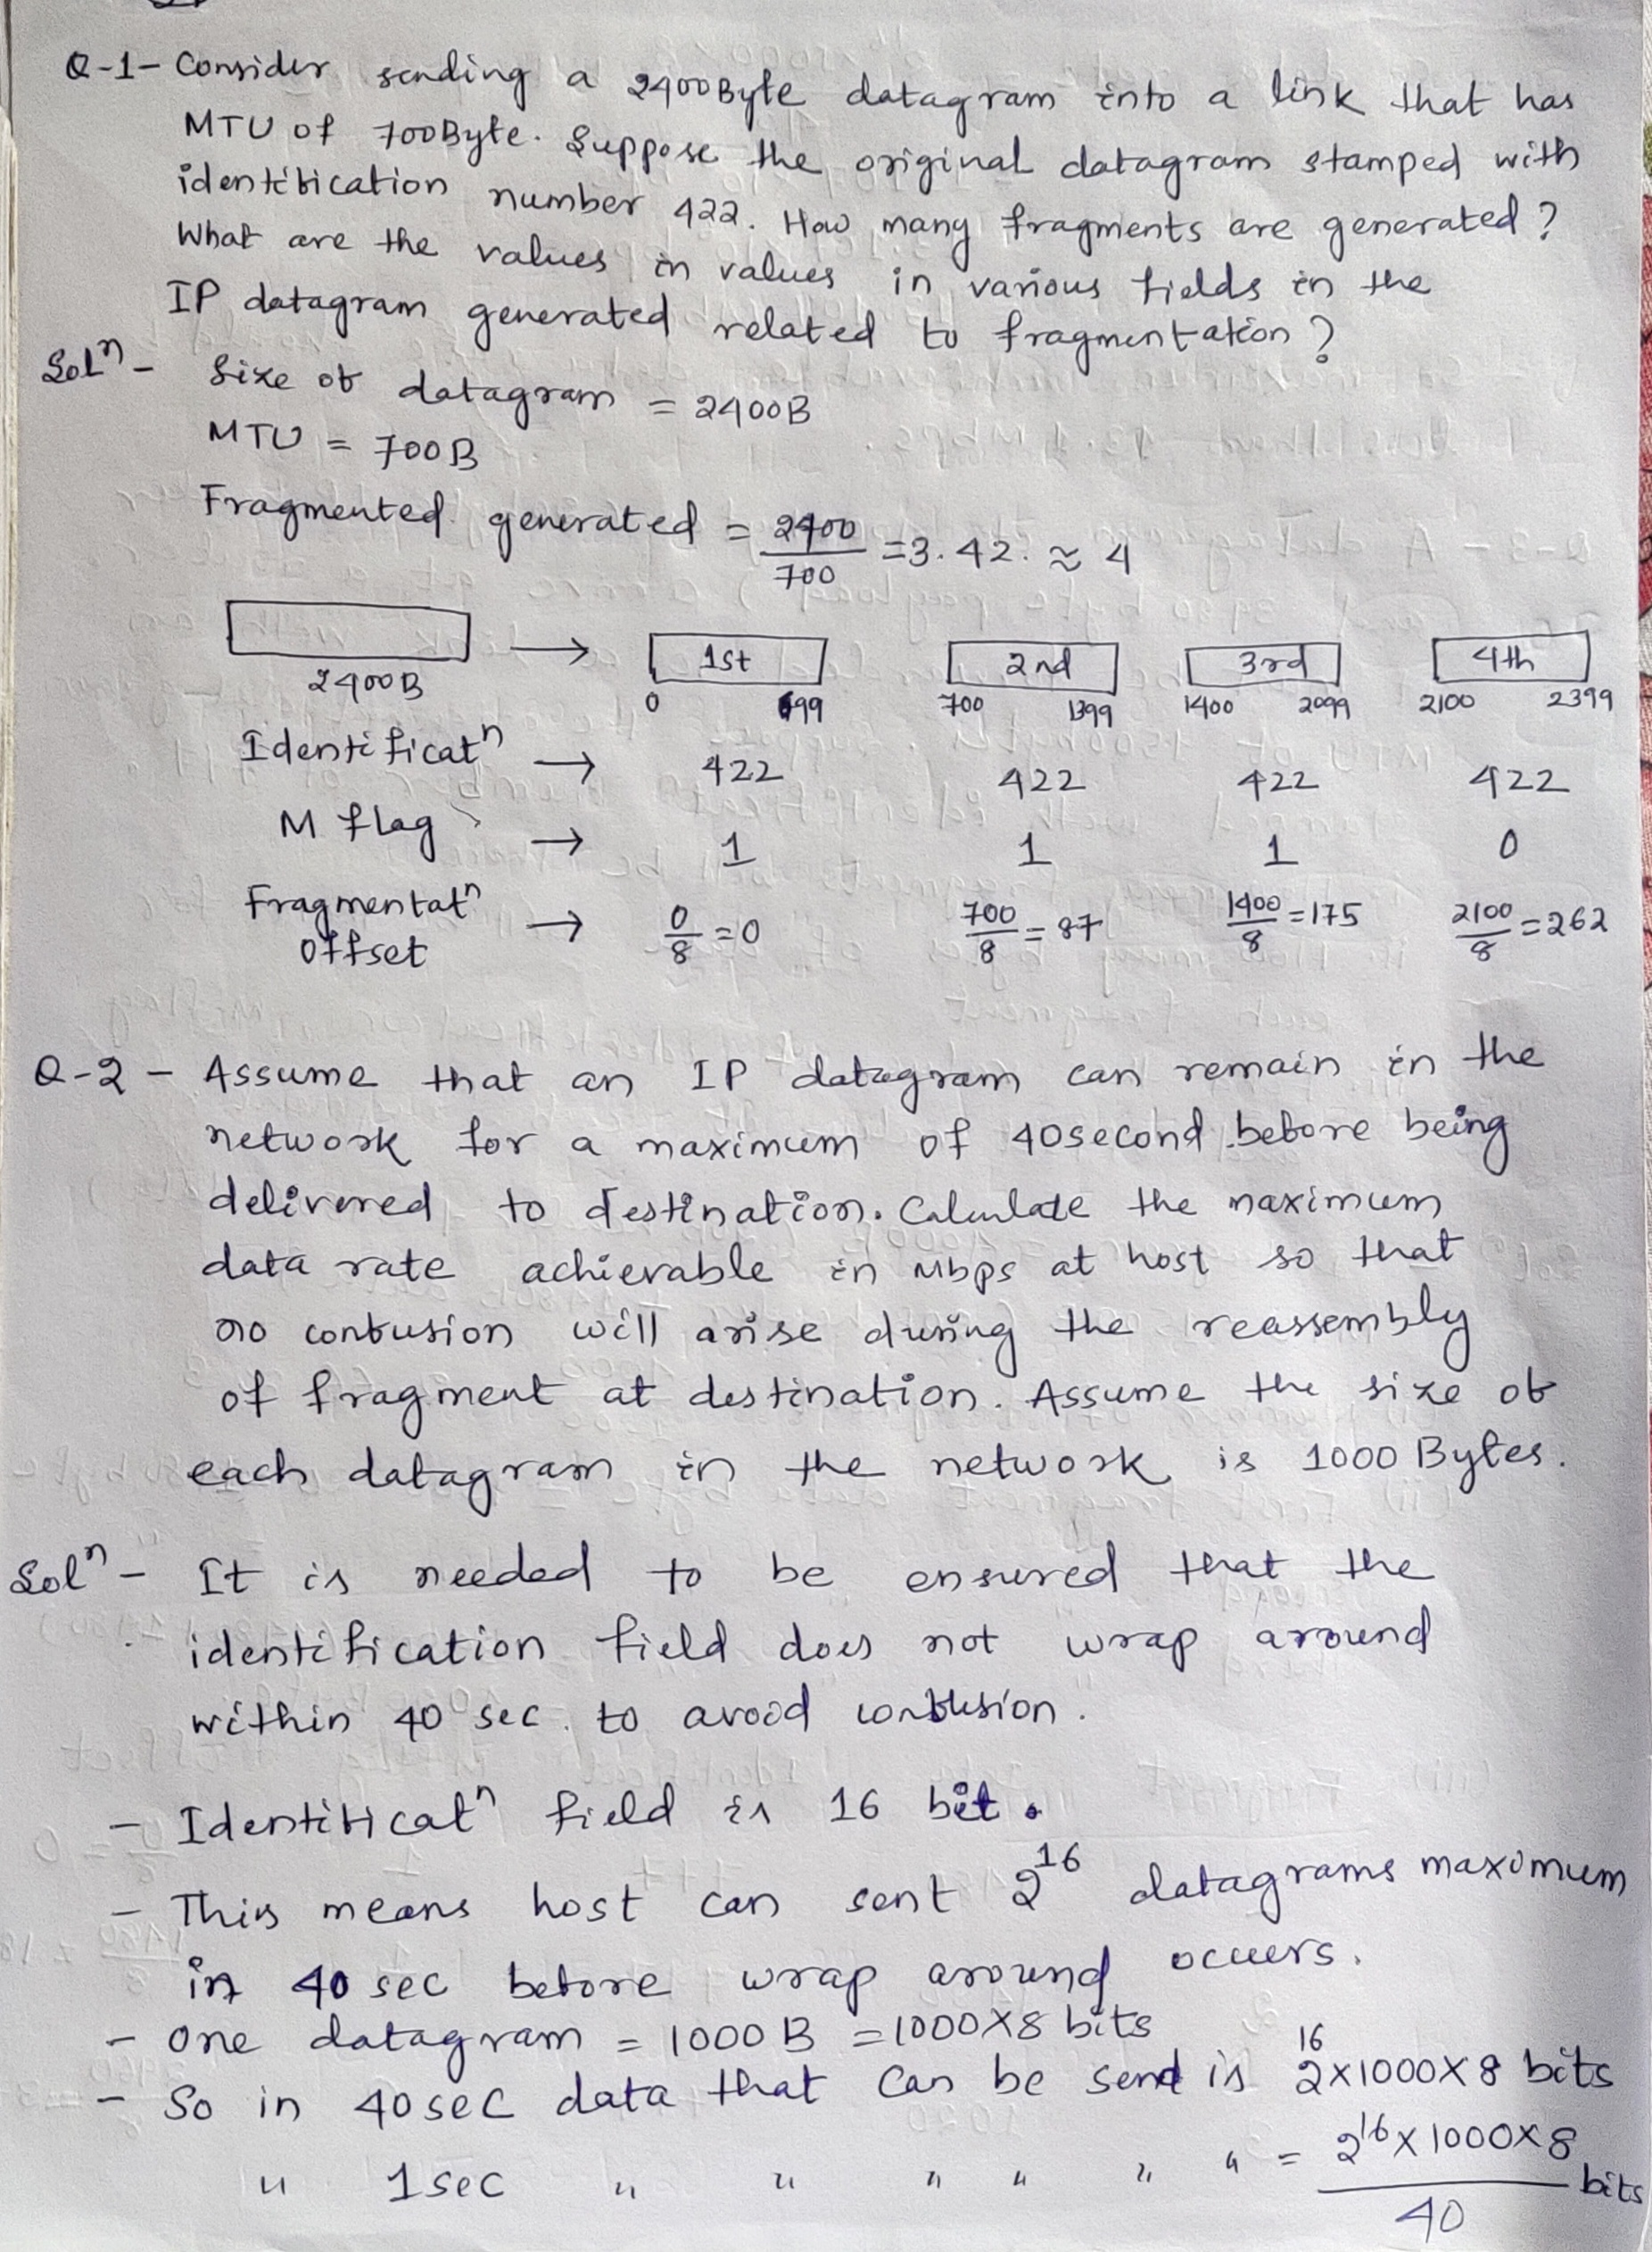 Q-1- Consider sending a 2400Byte datagram into a link that has
MTU of 700Byte. Suppose the original datagram stamped with
identification number 422. How many fragments are generated?
What are the values in values in various fields in the
IP datagram generated related to fragmentation?
Solⁿ- Size of datagram = 2400B
MTU = 700B
Fragmented generated = 2400/700 = 3.42. ≈ 4
→ 1st 2nd 3rd 4th
2400B 0 699 700 1399 1400 2099 2100 2399
Identificatⁿ → 422 422 422 422
M flag → 1 1 1 0
Fragmentatⁿ offset → 0/8 = 0 700/8 = 87 1400/8 = 175 2100/8 = 262
Q-2 - Assume that an IP datagram can remain in the
network for a maximum of 40second before being
delivered to destination. Calculate the maximum
data rate achievable in Mbps at host so that
no confusion will arise during the reassembly
of fragment at destination. Assume the size of
each datagram in the network is 1000 Bytes.
Solⁿ- It is needed to be ensured that the
identification field does not wrap around
within 40 sec. to avoid confusion.
- Identificatⁿ field is 16 bit.
- This means host can sent 2¹⁶ datagrams maximum
in 40 sec before wrap around occurs.
- One datagram = 1000 B = 1000X8 bits
- So in 40sec data that can be send is 2¹⁶X1000X8 bits
" 1sec " " " " " " = 2¹⁶X1000X8/40 bits